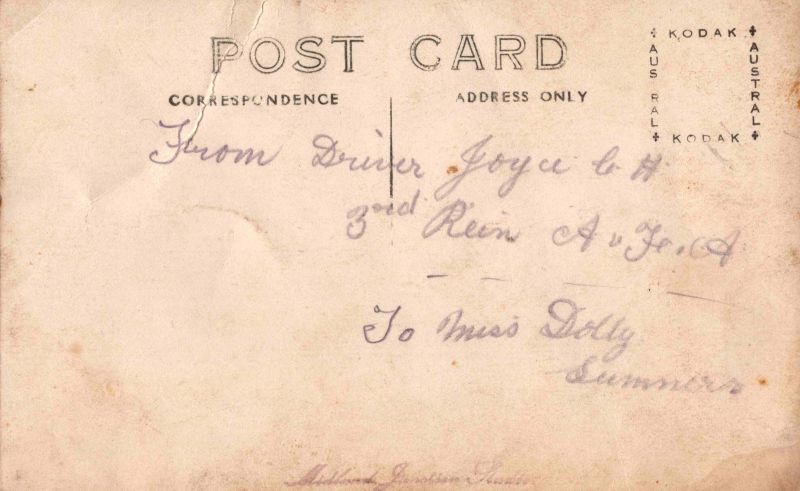 POST CARD
CORRESPONDENCE
ADDRESS ONLY
KODAK
AUSTRAL
AUSTRAL
KODAK
From Driver Joyce C H
3rd Rein A. F. A
To Miss Dolly
Summers
Midland Junction Studio